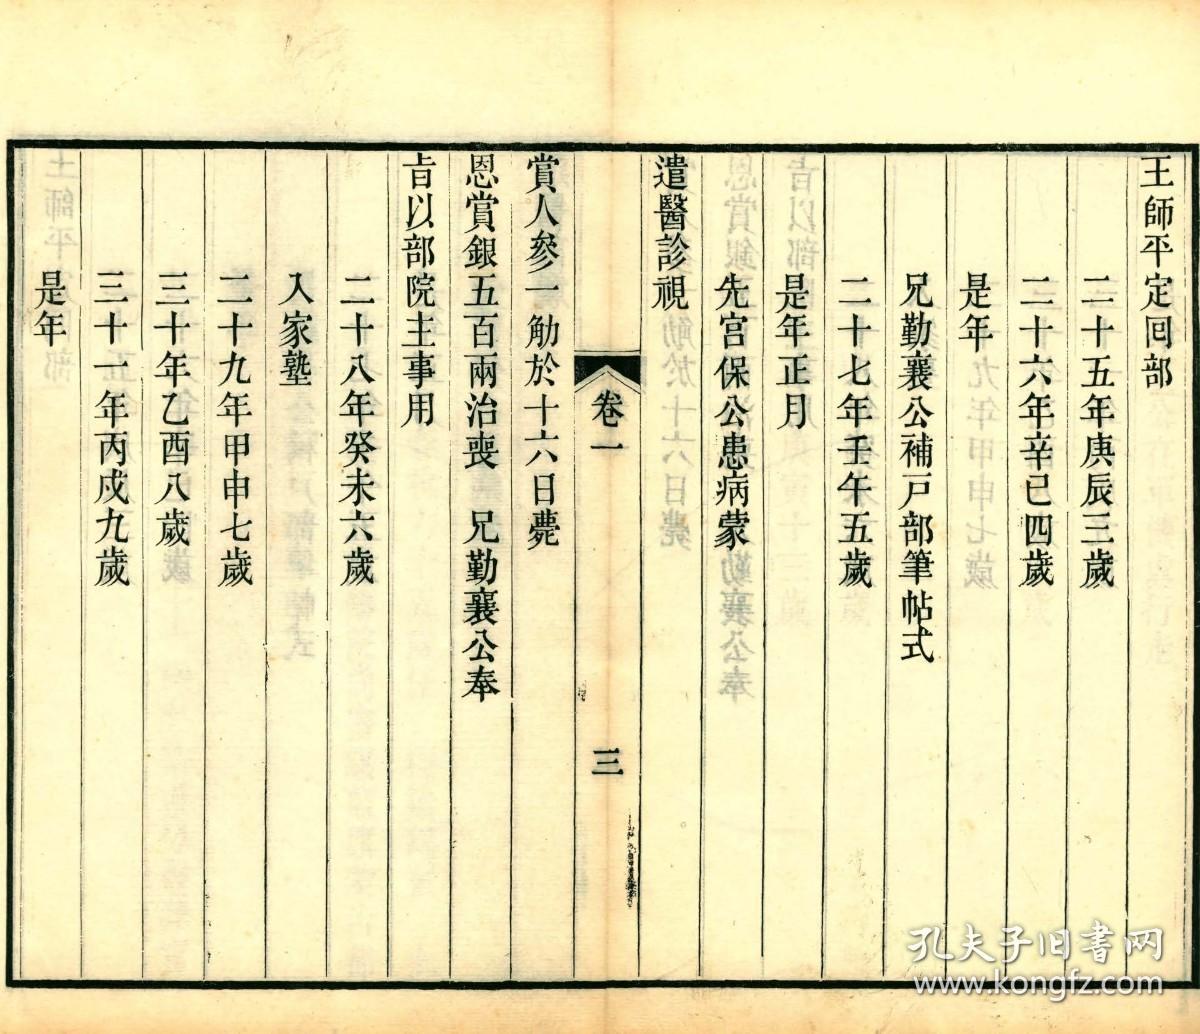 王師平定回部
二十五年庚辰三歲
二十六年辛巳四歲
是年
兄勤襄公補戸部筆帖式
二十七年壬午五歲
是年正月
先宫保公患病蒙
遣醫診視
卷一
三
賞人參一觔於十六日薨
恩賞銀五百兩治喪　兄勤襄公奉
㫖以部院主事用
二十八年癸未六歲
入家塾
二十九年甲申七歲
三十年乙酉八歲
三十一年丙戌九歲
是年
孔夫子旧书网
www.kongfz.com